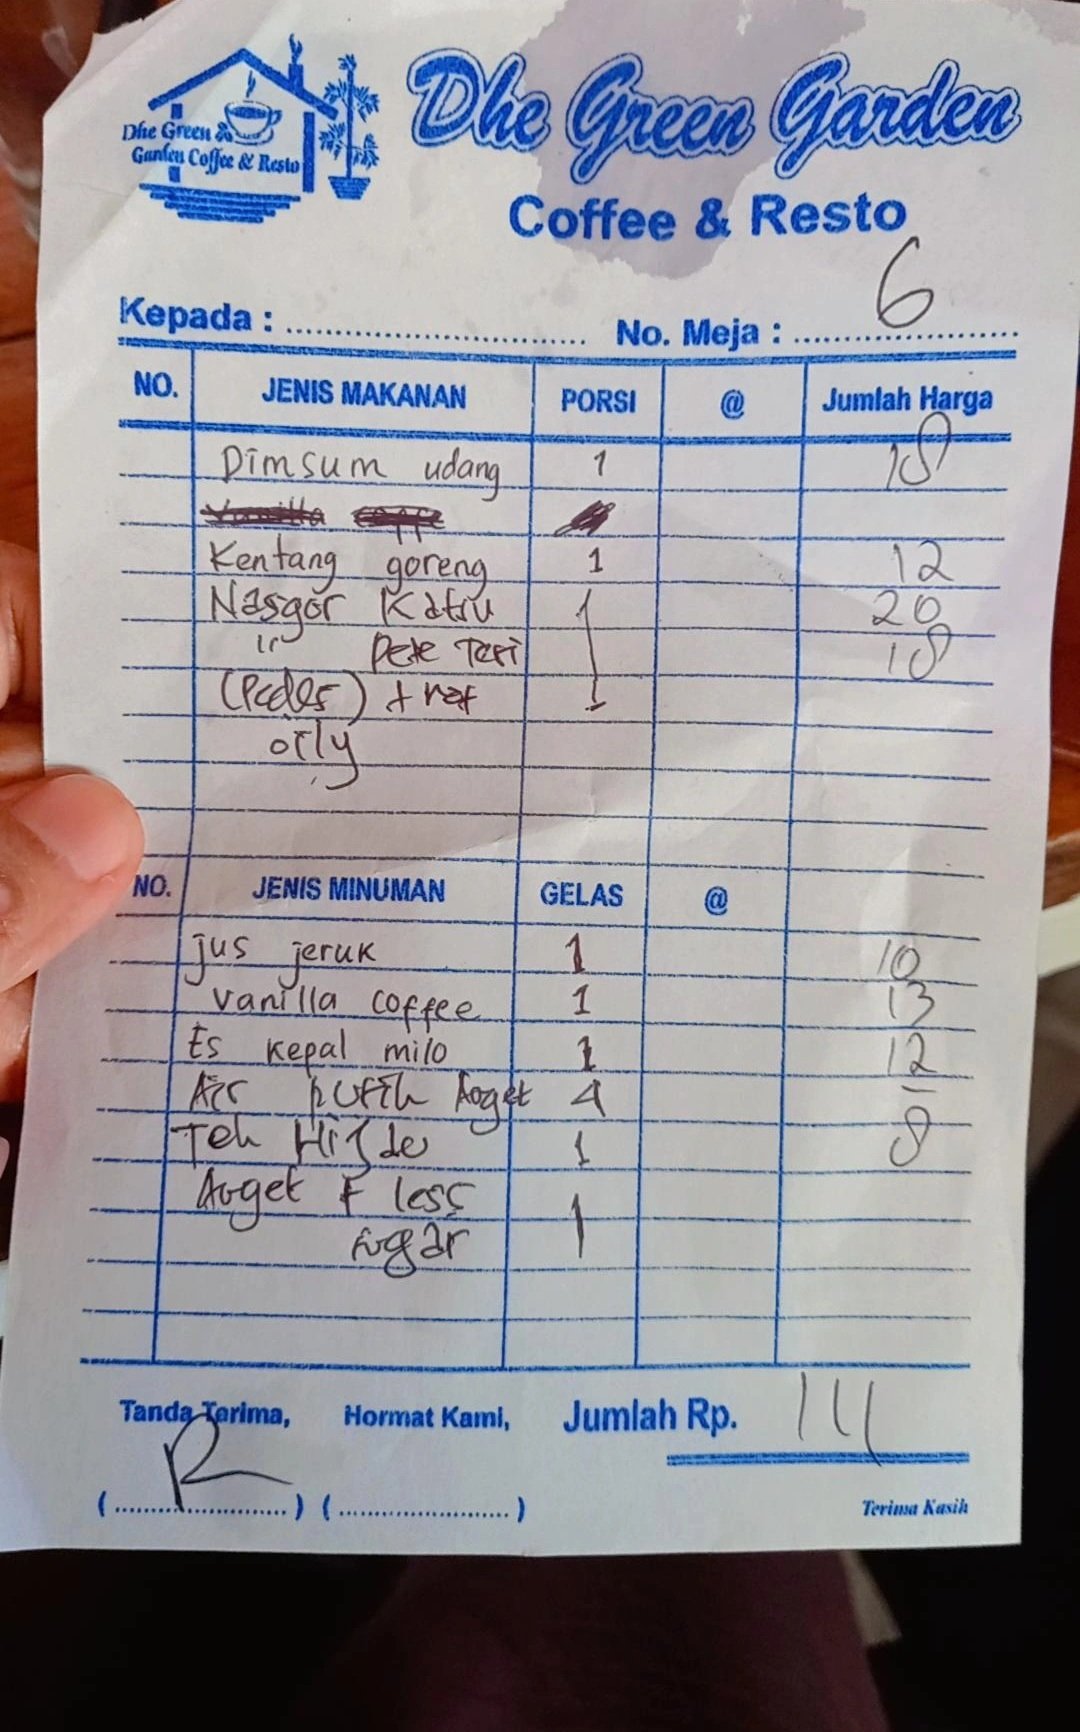 Dhe Green
Garden Coffee & Resto
Dhe Green Garden
Coffee & Resto
Kepada : No. Meja : 6
NO. JENIS MAKANAN PORSI @ Jumlah Harga
Dimsum udang 1 18
Kentang goreng 1 12
Nasgor Katsu 1 20
" Pete Teri 18
(Pedes) 1
NO. JENIS MINUMAN GELAS @
jus jeruk 1 10
vanilla coffee 1 13
Es kepal milo 1 12
Air putih Anget 4 -
Teh Hijau 1 8
Anget + less 1
sugar
Tanda Terima, Hormat Kami, Jumlah Rp. 111
(........................) (........................)
Terima Kasih